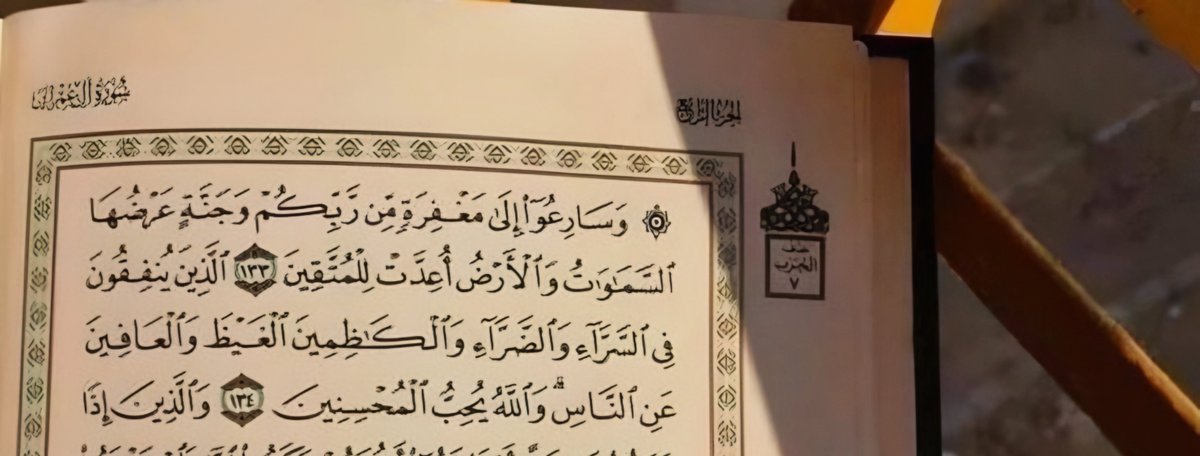 سُورَةُ آلِ عِمْرَانَ
الجُزْءُ الرَّابِعُ
۞ وَسَارِعُوٓا۟ إِلَىٰ مَغْفِرَةٍ مِّن رَّبِّكُمْ وَجَنَّةٍ عَرْضُهَا
ٱلسَّمَـٰوَٰتُ وَٱلْأَرْضُ أُعِدَّتْ لِلْمُتَّقِينَ ١٣٣ ٱلَّذِينَ يُنفِقُونَ
فِى ٱلسَّرَّآءِ وَٱلضَّرَّآءِ وَٱلْكَـٰظِمِينَ ٱلْغَيْظَ وَٱلْعَافِينَ
عَنِ ٱلنَّاسِ ۗ وَٱللَّهُ يُحِبُّ ٱلْمُحْسِنِينَ ١٣٤ وَٱلَّذِينَ إِذَا
نصف
الحزب
٧